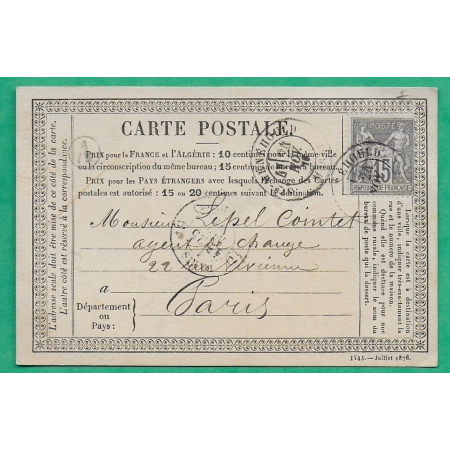 CARTE POSTALE
PRIX pour la FRANCE et l'ALGÉRIE: 10 centimes pour la même ville
ou la circonscription du même bureau; 15 centimes de bureau à bureau.
PRIX pour les PAYS ÉTRANGERS avec lesquels l'échange des Cartes
postales est autorisé: 15 ou 20 centimes suivant la destination.
L'adresse seule doit être mise de ce côté de la carte.
L'autre côté est réservé à la correspondance.
A
POSTE
15
Monsieur Lepel Cointet
agent de change
22 rue
A
Paris
Département
ou
Pays:
Lorsque la carte est à destination
d'une ville, indiquer très-exactement la
rue et le numéro de la maison.
Quand elle est destinée pour une
commune rurale, indiquer le nom du
bureau de poste qui la dessert.
1145.—Juillet 1876.